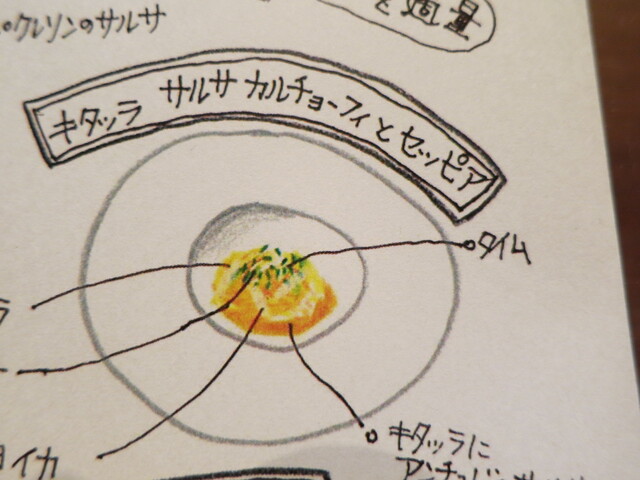 クレソンのサルサ
と適量
キタッラ サルサ カルチョーフィと セッピア
タイム
ラ
イカ
キタッラに